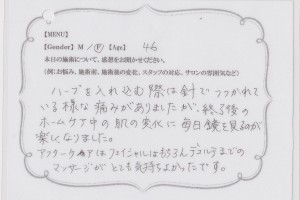 【MENU】
【Gender】M /Ⓕ【Age】 46
本日の施術について、感想をお聞かせください。
(例:お悩み、施術前、施術後の変化、スタッフの対応、サロンの雰囲気など)
ハーブを入れ込む際は針でつつかれて
いる様な痛みがありましたが、終了後の
ホームケア中の肌の変化に毎日鏡を見るのが
楽しくなりました。
アフターケアはフェイシャルはもちろんデコルテまでの
マッサージがとても気持ちよかったです。